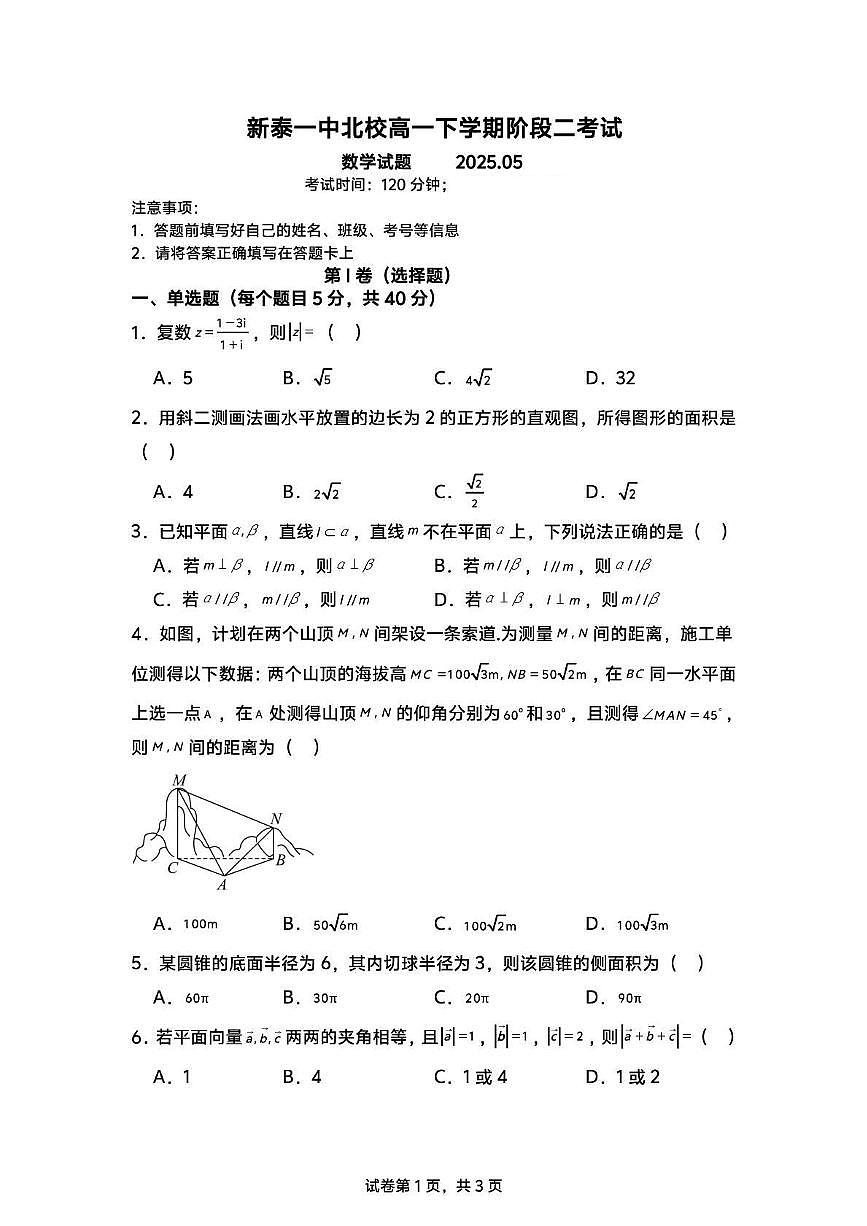 新泰一中北校高一下学期阶段二考试
数学试题 2025.05
考试时间：120 分钟；
注意事项：
1．答题前填写好自己的姓名、班级、考号等信息
2．请将答案正确填写在答题卡上
第 I 卷（选择题）
一、单选题（每个题目 5 分，共 40 分）
1．复数 z=\frac{1-3i}{1+i}，则|z|=（ ）
A．5 B．√5 C．4√2 D．32
2．用斜二测画法画水平放置的边长为 2 的正方形的直观图，所得图形的面积是
（ ）
A．4 B．2√2 C．\frac{√2}{2} D．√2
3．已知平面 α,β，直线 l⊂α，直线 m 不在平面 α 上，下列说法正确的是（ ）
A．若 m⊥β，l//m，则 α⊥β B．若 m//β，l//m，则 α//β
C．若 α//β，m//β，则 l//m D．若 α⊥β，l⊥m，则 m//β
4．如图，计划在两个山顶 M,N 间架设一条索道.为测量 M,N 间的距离，施工单
位测得以下数据：两个山顶的海拔高 MC=100√3m,NB=50√2m，在 BC 同一水平面
上选一点 A，在 A 处测得山顶 M,N 的仰角分别为 60°和 30°，且测得 ∠MAN=45°，
则 M,N 间的距离为（ ）
M
N
C
B
A
A．100m B．50√6m C．100√2m D．100√3m
5．某圆锥的底面半径为 6，其内切球半径为 3，则该圆锥的侧面积为（ ）
A．60π B．30π C．20π D．90π
6．若平面向量 a⃗,b⃗,c⃗ 两两的夹角相等，且|a⃗|=1，|b⃗|=1，|c⃗|=2，则|a⃗+b⃗+c⃗|=（ ）
A．1 B．4 C．1 或 4 D．1 或 2
试卷第 1 页，共 3 页